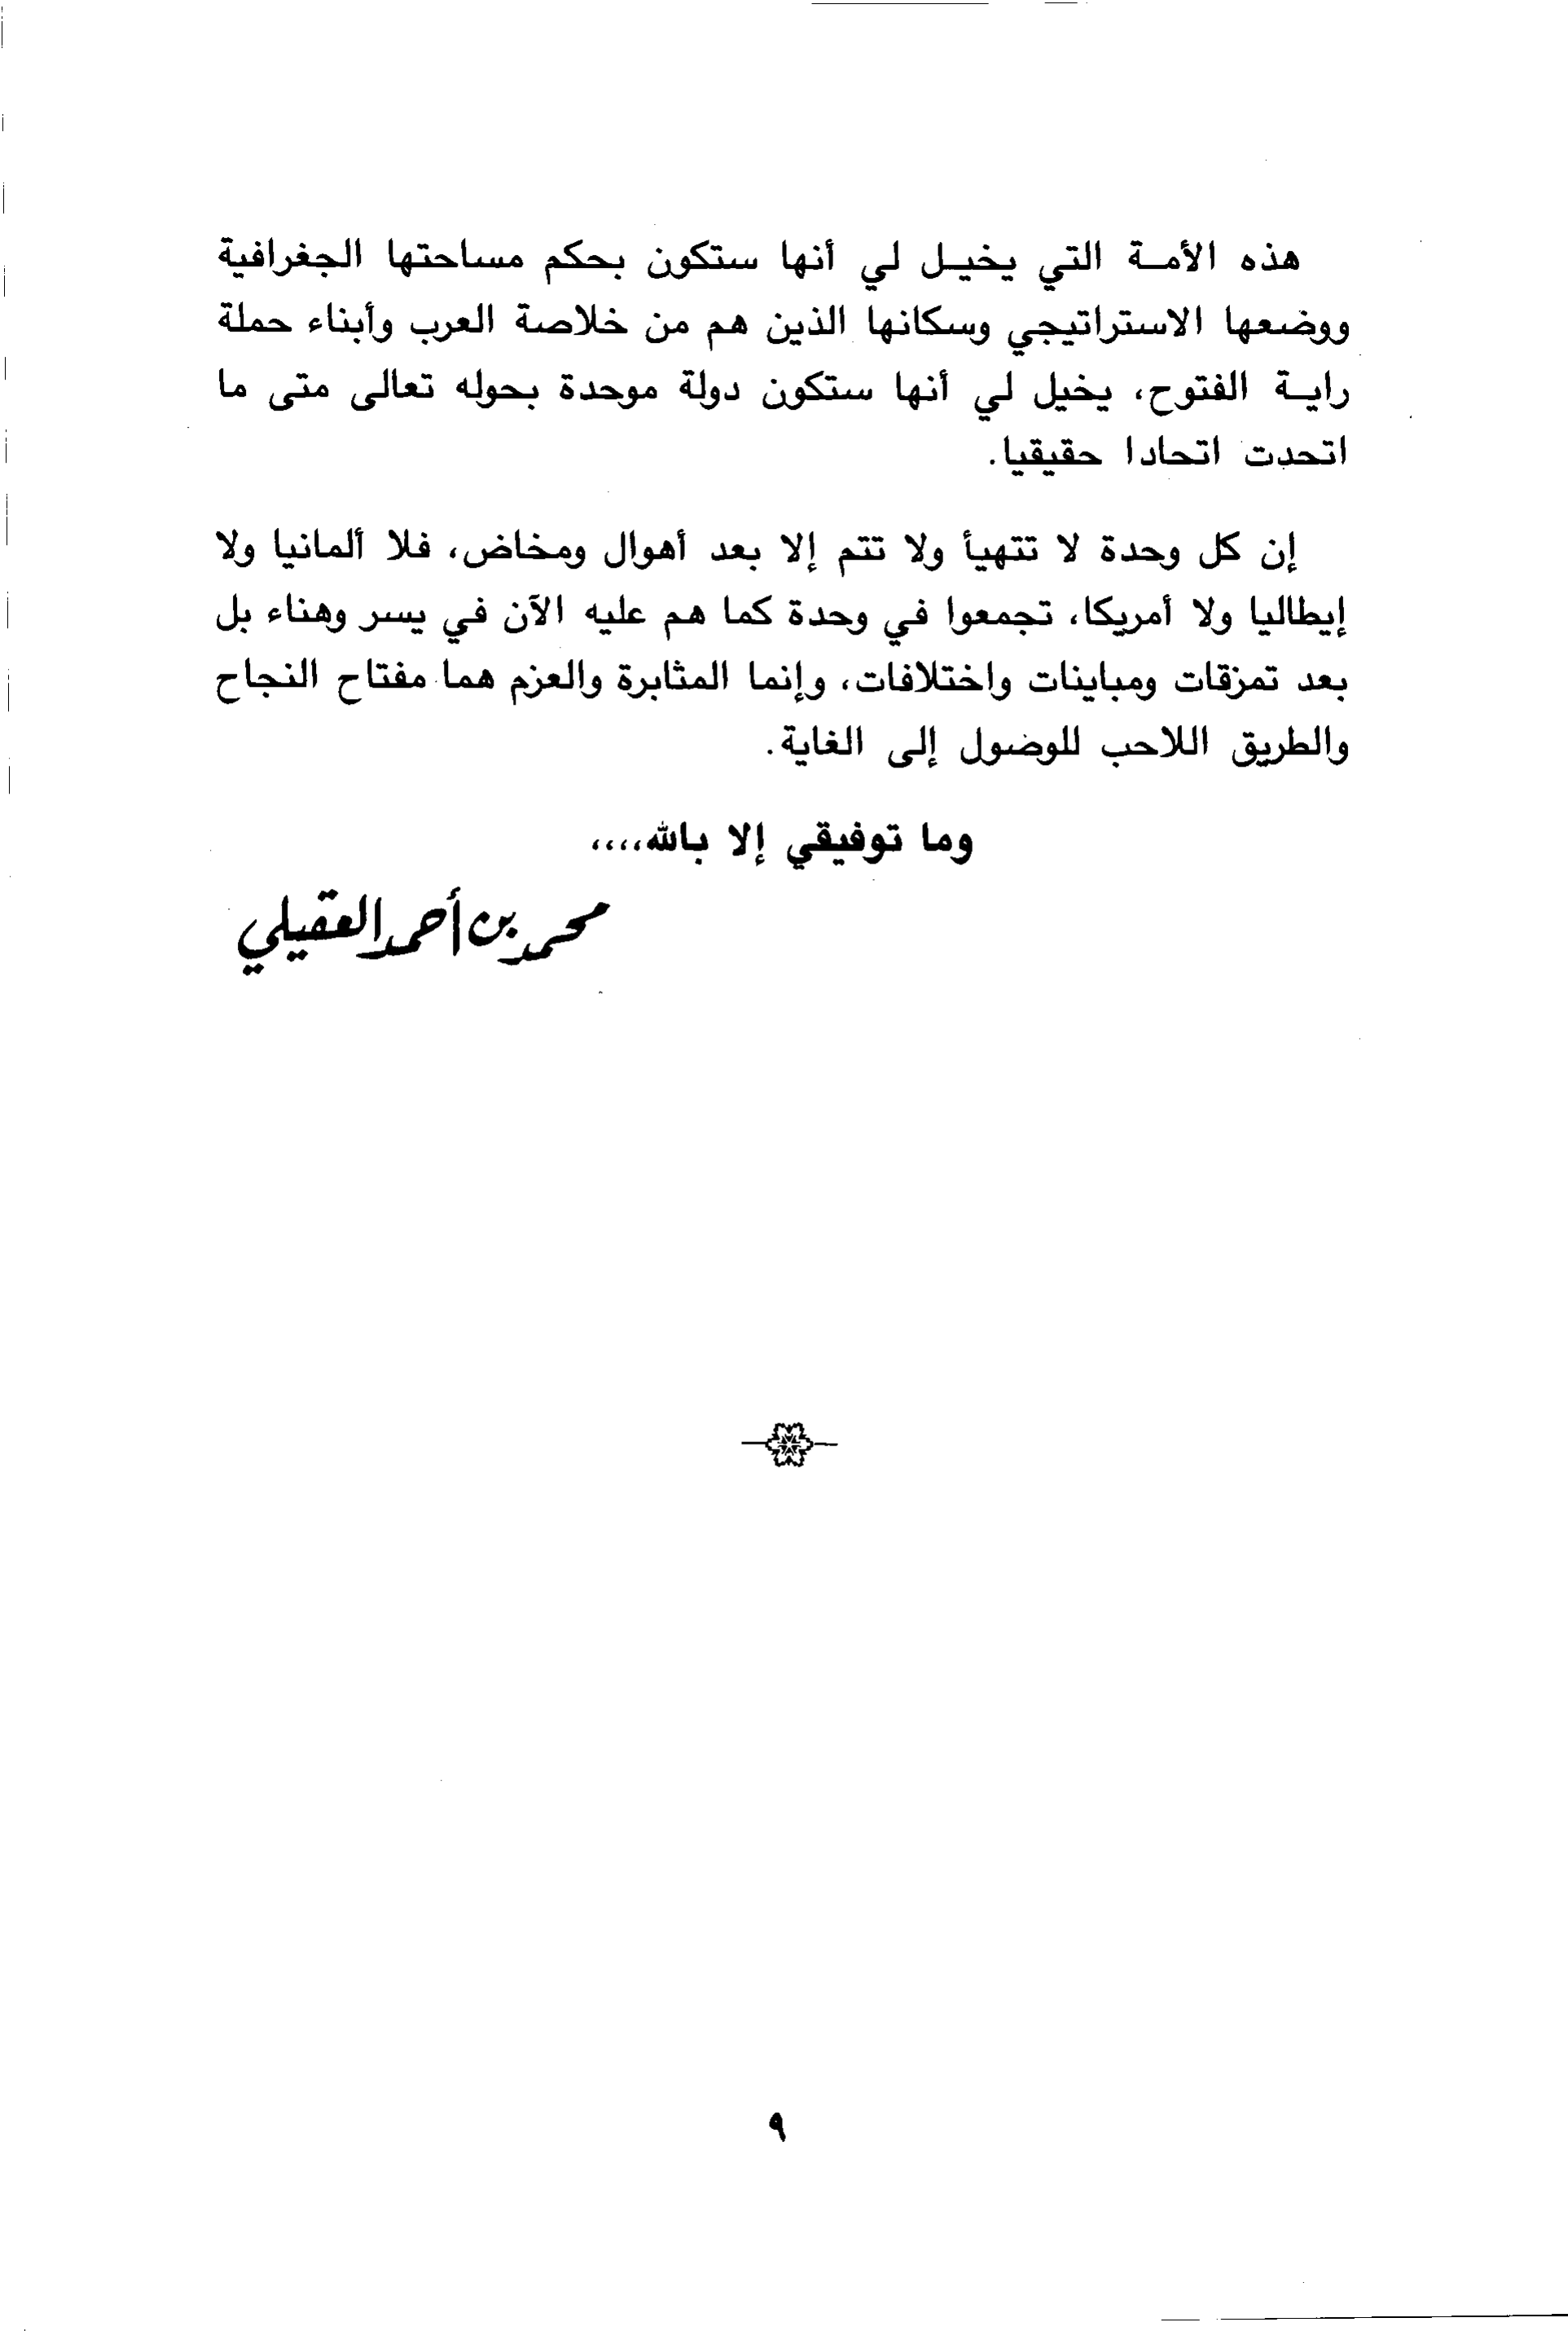 هذه الأمة التي يخيل لي أنها ستكون بحكم مساحتها الجغرافية
ووضعها الاستراتيجي وسكانها الذين هم من خلاصة العرب وأبناء حملة
راية الفتوح، يخيل لي أنها ستكون دولة موحدة بحوله تعالى متى ما
اتحدت اتحادا حقيقيا.
إن كل وحدة لا تتهيأ ولا تتم إلا بعد أهوال ومخاض، فلا ألمانيا ولا
إيطاليا ولا أمريكا، تجمعوا في وحدة كما هم عليه الآن في يسر وهناء بل
بعد تمزقات ومباينات واختلافات، وإنما المثابرة والعزم هما مفتاح النجاح
والطريق اللاحب للوضول إلى الغاية.
وما توفيقي إلا بالله،،،،
محمد بن أحمد العقيلي
٩